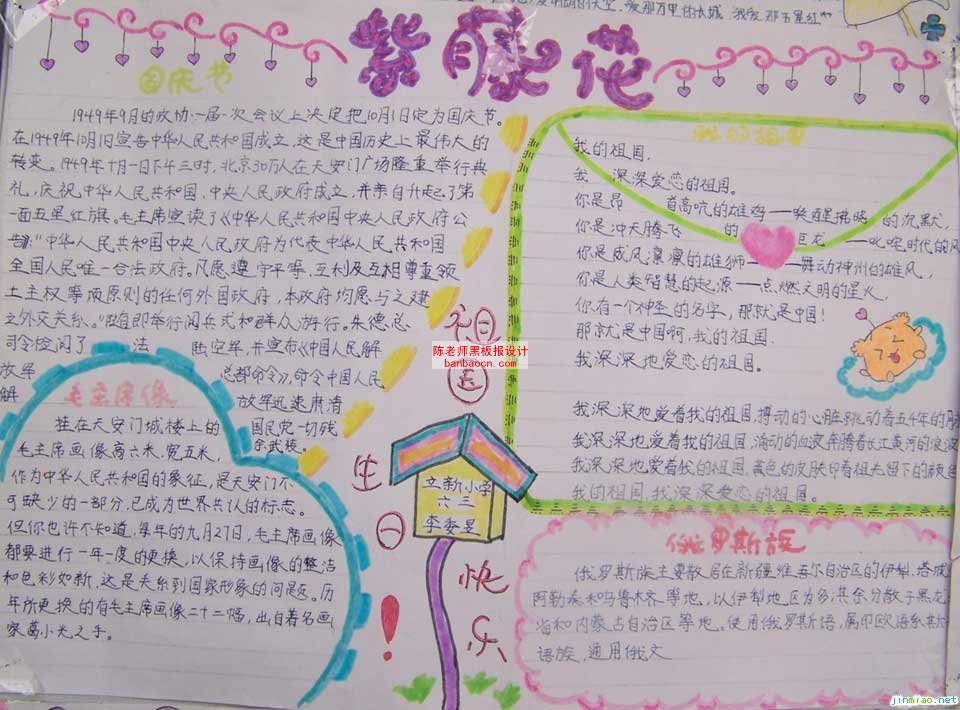 爱那万里的长城，我爱那五星红
紫藤花
国庆节
1949年9月的政协一届一次会议上决定把10月1日定为国庆节。
在1949年10月1日宣告中华人民共和国成立，这是中国历史上最伟大的
转变。1949年十月一日下午三时，北京30万人在天安门广场隆重举行典
礼，庆祝中华人民共和国，中央人民政府成立，并亲自升起了第
一面五星红旗。毛主席宣读了《中华人民共和国中央人民政府公
告》："中华人民共和国中央人民政府为代表中华人民共和国
全国人民唯一合法政府。凡愿遵守平等，互利及互相尊重领
土主权等项原则的任何外国政府，本政府均愿与之建
之外交关系。"随即举行阅兵式和群众游行。朱德总
司令检阅了 法 陆空军，并宣布《中国人民解
放军 总部命令》，命令中国人民
解 放军迅速肃清
国民党一切残
余武装。
毛主席像
挂在天安门城楼上的
毛主席画像高六米，宽五米，
作为中华人民共和国的象征，是天安门不
可缺少的一部分，已成为世界共认的标志。
但你也许不知道，每年的九月27日，毛主席画像
都要进行一年一度的更换，以保持画像的整洁
和色彩如新，这是关系到国家形象的问题。历
年所更换的有毛主席画像二十二幅，出自著名画
家葛小光之手。
祖
国
生
日
快
乐
！
陈老师黑板报设计
banbaocn.com
立新小学
六三
李委昱
我的祖国
我的祖国，
我 深深爱恋的祖国。
你是昂 首高吭的雄鸡——唤醒拂晓 的沉默，
你是冲天腾飞 的 巨龙——叱咤时代的风
你是威风凛凛的雄狮——舞动神州的雄风，
你是人类智慧的起源——点燃文明的星火，
你有一个神圣的名字，那就是中国！
那就是中国啊，我的祖国.
我深深地爱恋的祖国.
我深深地爱着我的祖国，搏动的心脏跳动着五千年的
我深深地爱着我的祖国，涌动的血液奔腾着长江黄河的浪波
我深深地爱着我的祖国，黄色的皮肤印着祖先留下的颜色
我的祖国，我深深爱恋的祖国.
俄罗斯族
俄罗斯族主要散居在新疆维吾尔自治区的伊犁、塔城
阿勒泰和乌鲁木齐等地，以伊犁地区为多，其余分散于黑龙
省和内蒙古自治区等地。使用俄罗斯语，属印欧语系斯
语族，通用俄文
jinmiao.net